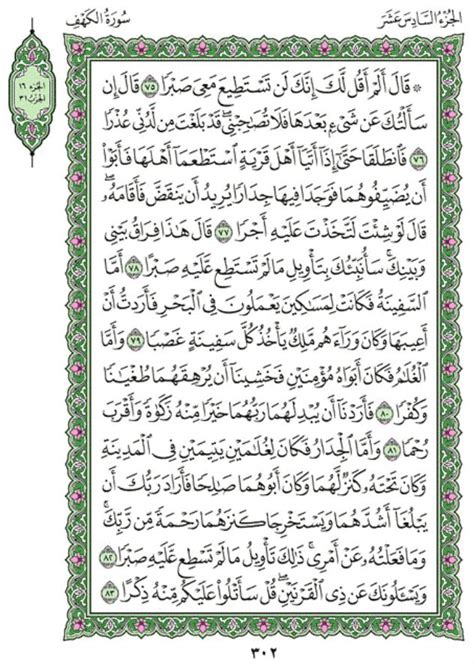 الجزء السادس عشر
سورة الكهف
الجزء ١٦
الحزب ٣١
۞ قَالَ أَلَمْ أَقُل لَّكَ إِنَّكَ لَن تَسْتَطِيعَ مَعِىَ صَبْرًا ٧٥ قَالَ إِن
سَأَلْتُكَ عَن شَىْءٍۭ بَعْدَهَا فَلَا تُصَٰحِبْنِى ۖ قَدْ بَلَغْتَ مِن لَّدُنِّى عُذْرًا
٧٦ فَٱنطَلَقَا حَتَّىٰٓ إِذَآ أَتَيَآ أَهْلَ قَرْيَةٍ ٱسْتَطْعَمَآ أَهْلَهَا فَأَبَوْا۟
أَن يُضَيِّفُوهُمَا فَوَجَدَا فِيهَا جِدَارًا يُرِيدُ أَن يَنقَضَّ فَأَقَامَهُۥ ۖ
قَالَ لَوْ شِئْتَ لَتَّخَذْتَ عَلَيْهِ أَجْرًا ٧٧ قَالَ هَٰذَا فِرَاقُ بَيْنِى
وَبَيْنِكَ ۚ سَأُنَبِّئُكَ بِتَأْوِيلِ مَا لَمْ تَسْتَطِع عَّلَيْهِ صَبْرًا ٧٨ أَمَّا
ٱلسَّفِينَةُ فَكَانَتْ لِمَسَٰكِينَ يَعْمَلُونَ فِى ٱلْبَحْرِ فَأَرَدتُّ أَنْ
أَعِيبَهَا وَكَانَ وَرَآءَهُم مَّلِكٌ يَأْخُذُ كُلَّ سَفِينَةٍ غَصْبًا ٧٩ وَأَمَّا
ٱلْغُلَٰمُ فَكَانَ أَبَوَاهُ مُؤْمِنَيْنِ فَخَشِينَآ أَن يُرْهِقَهُمَا طُغْيَٰنًا
وَكُفْرًا ٨٠ فَأَرَدْنَآ أَن يُبْدِلَهُمَا رَبُّهُمَا خَيْرًا مِّنْهُ زَكَوٰةً وَأَقْرَبَ
رُحْمًا ٨١ وَأَمَّا ٱلْجِدَارُ فَكَانَ لِغُلَٰمَيْنِ يَتِيمَيْنِ فِى ٱلْمَدِينَةِ
وَكَانَ تَحْتَهُۥ كَنزٌ لَّهُمَا وَكَانَ أَبُوهُمَا صَٰلِحًا فَأَرَادَ رَبُّكَ أَن
يَبْلُغَآ أَشُدَّهُمَا وَيَسْتَخْرِجَا كَنزَهُمَا رَحْمَةً مِّن رَّبِّكَ ۚ
وَمَا فَعَلْتُهُۥ عَنْ أَمْرِى ۚ ذَٰلِكَ تَأْوِيلُ مَا لَمْ تَسْطِع عَّلَيْهِ صَبْرًا ٨٢
وَيَسْـَٔلُونَكَ عَن ذِى ٱلْقَرْنَيْنِ ۖ قُلْ سَأَتْلُوا۟ عَلَيْكُم مِّنْهُ ذِكْرًا ٨٣
٣٠٢